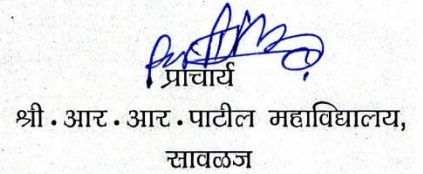 प्राचार्य
श्री.आर.आर.पाटील महाविद्यालय,
सावळज